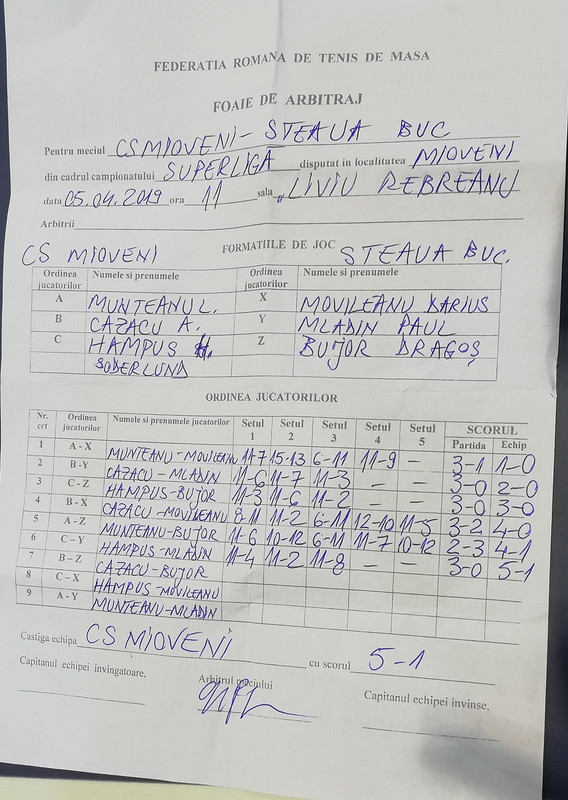 FEDERATIA ROMANA DE TENIS DE MASA
FOAIE DE ARBITRAJ
Pentru meciul CS MIOVENI - STEAUA BUC
din cadrul campionatului SUPERLIGA disputat in localitatea MIOVENI
data 05.04.2019 ora 11 sala „LIVIU REBREANU
Arbitrii
CS MIOVENI FORMATIILE DE JOC STEAUA BUC.
Ordinea jucatorilor Numele si prenumele Ordinea jucatorilor Numele si prenumele
A MUNTEANU L. X MOVILEANU DARIUS
B CAZACU A. Y MLADIN PAUL
C HAMPUS Z BUJOR DRAGOȘ
SODERLUND
ORDINEA JUCATORILOR
Nr. crt Ordinea jucatorilor Numele si prenumele jucatorilor Setul 1 Setul 2 Setul 3 Setul 4 Setul 5 SCORUL Partida Echip
1 A - X MUNTEANU - MOVILEANU 11-7 15-13 6-11 11-9 — 3-1 1-0
2 B - Y CAZACU - MLADIN 11-6 11-7 11-3 — — 3-0 2-0
3 C - Z HAMPUS - BUJOR 11-3 11-6 11-2 — — 3-0 3-0
4 B - X CAZACU - MOVILEANU 8-11 11-2 6-11 12-10 11-5 3-2 4-0
5 A - Z MUNTEANU - BUJOR 11-6 10-12 6-11 11-7 10-12 2-3 4-1
6 C - Y HAMPUS - MLADIN 11-4 11-2 11-8 — — 3-0 5-1
7 B - Z CAZACU - BUJOR
8 C - X HAMPUS - MOVILEANU
9 A - Y MUNTEANU - MLADIN
Castiga echipa CS MIOVENI cu scorul 5-1
Capitanul echipei invingatoare, Arbitrul meciului Capitanul echipei invinse,